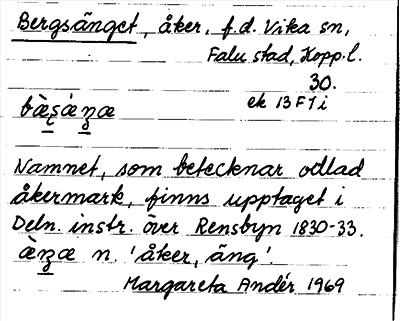 Bergsänget, åker, f.d. Vika sn,
Falu stad, Kopp.l.
30.
ek 13 F 7 i
Namnet, som betecknar odlad
åkermark, finns upptaget i
Deln. instr. över Rensbyn 1830-33.
n. 'åker, äng'.
Margareta Andér 1969